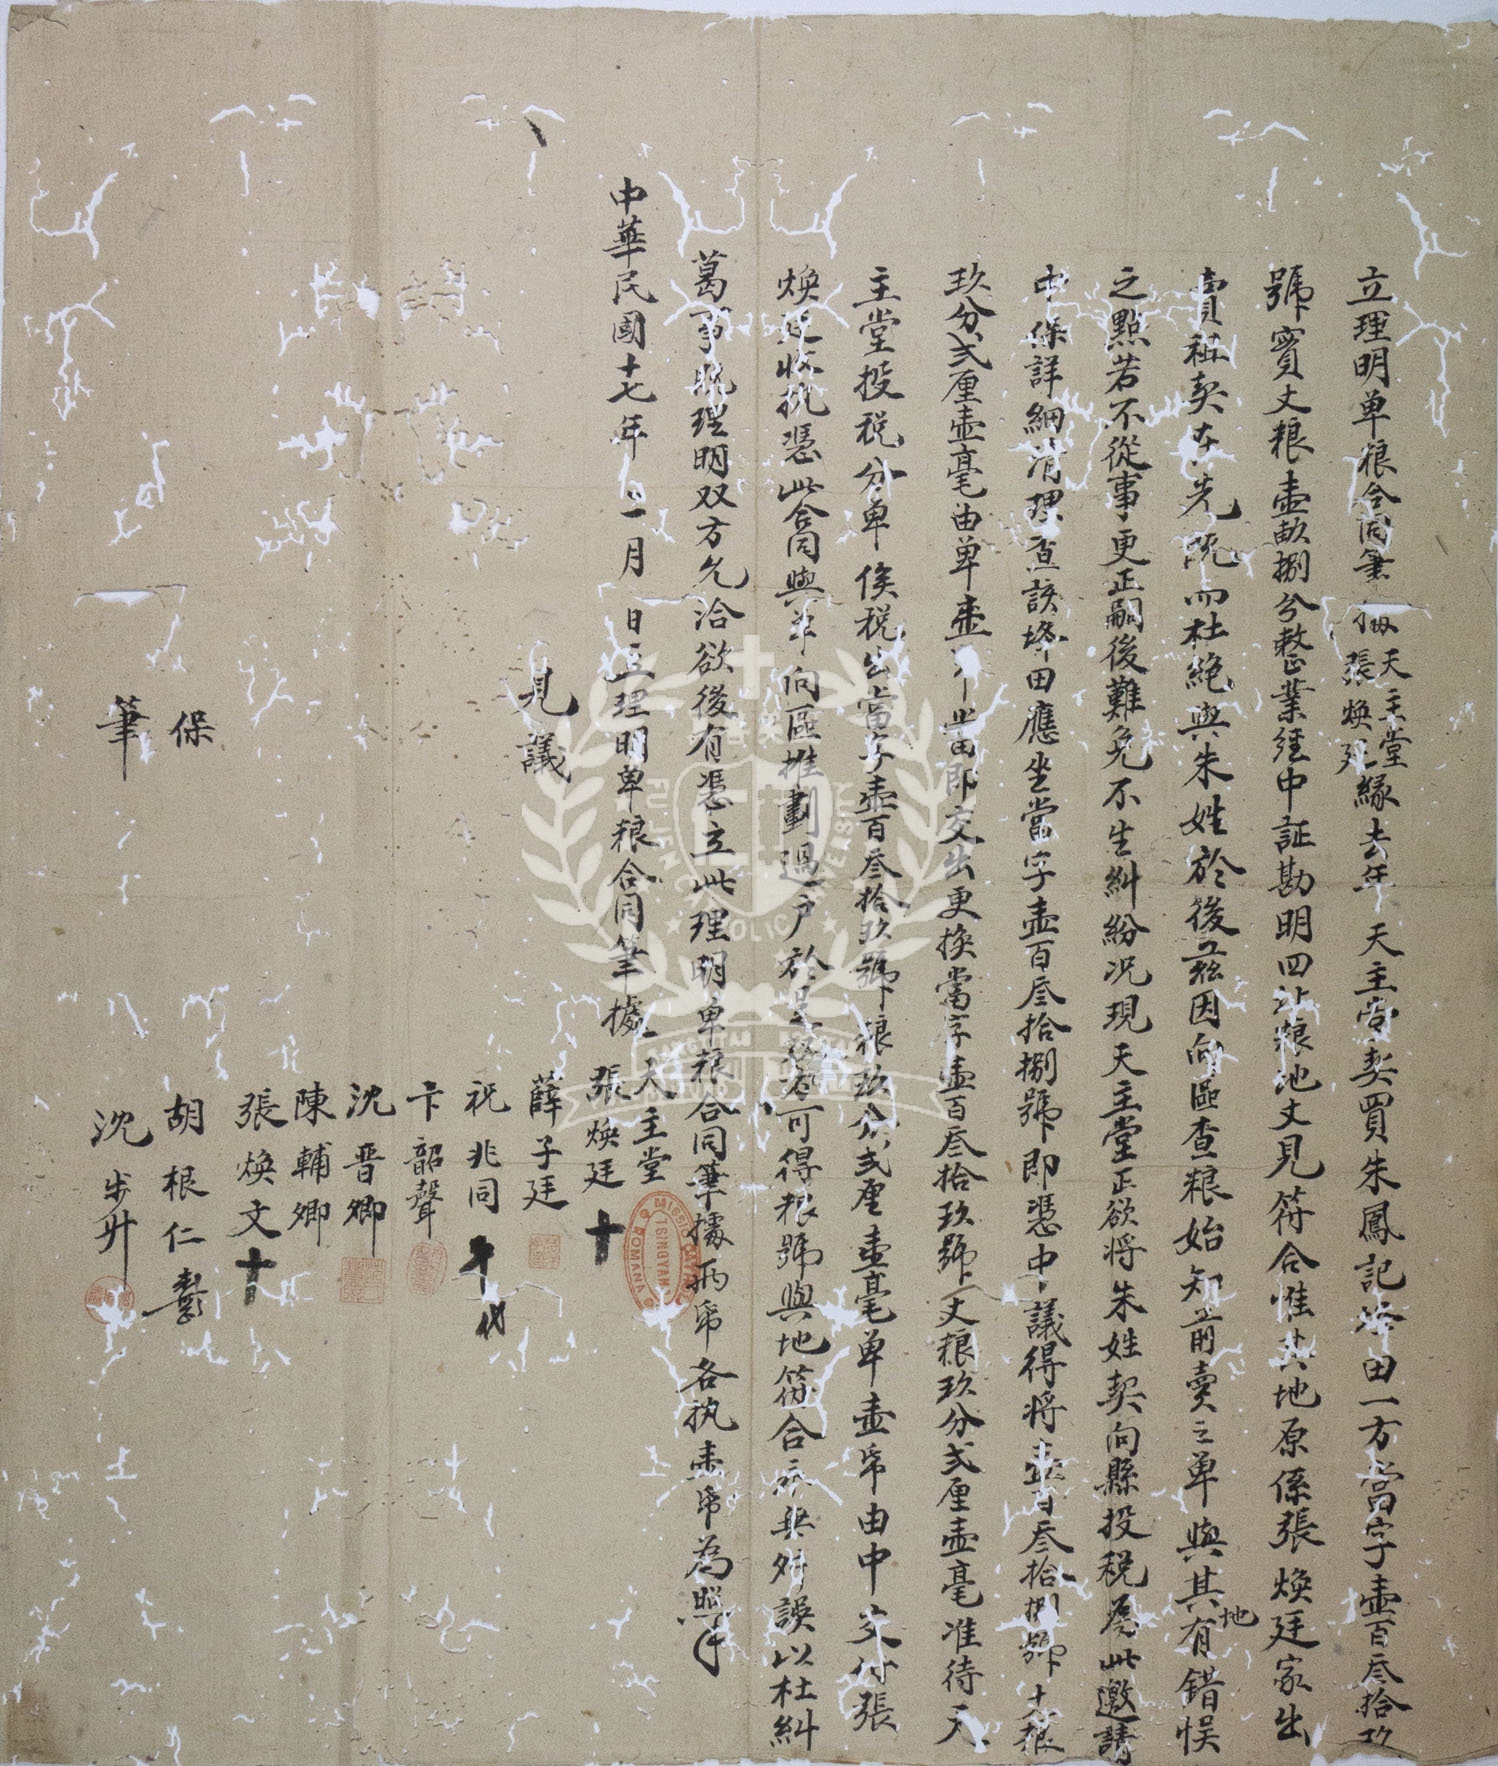 立理明单粮合同筆據天主堂張煥廷緣去年天主堂契買朱鳳記塔田一方當字壷百叁拾玖
號實丈粮壷畝捌分整業经中証勘明四址粮地丈見符合惟其地原係張煥廷家出
賣租契在先既而杜絶與朱姓於後茲因向區查粮始知前賣之单與其地有錯悮
之點若不從事更正嗣後難免不生糾紛况現天主堂正欲将朱姓契向縣投税為此邀請
中保詳細清理查該塔田應坐當字壷百叁拾捌號即憑中議得将壷百叁拾捌號丈粮
玖分弍厘壷毫由单壷帋當即交出更換當字壷百叁拾玖號丈粮玖分弍厘壷毫准待天
主堂投税分单俟税出當字壷百叁拾玖號粮玖分弍厘壷毫单壷帋由中交付張
煥廷收执憑此合同與单向區推劃過户於是整零可得粮號與地符合永無舛誤以杜糾
葛事既理明双方允洽欲後有憑立此理明单粮合同筆據兩帋各执壷帋為照
中華民國十七年 一月 日立理明单粮合同筆據 天主堂
張煥廷 十
MISSIO CATH TSINGYAN ROMANA
見議 薛子廷
祝兆同
卞韶聲
沈晋卿
陳輔卿
張煥文 十
保 胡根仁
筆 沈步升